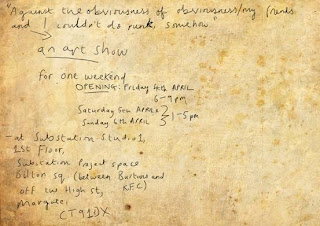 "Against the obviousness of obviousness/my friends
and I couldn't do punk, somehow"
an art show
for one weekend
OPENING: Friday 4th APRIL
6-9pm
Saturday 5th APRIL
Sunday 6th APRIL } 1-5pm
- at Substation Studio 1,
1st Floor,
Substation Project space
Bilton sq. (between Burtons and
off the High st, KFC)
Margate,
CT9 1DX